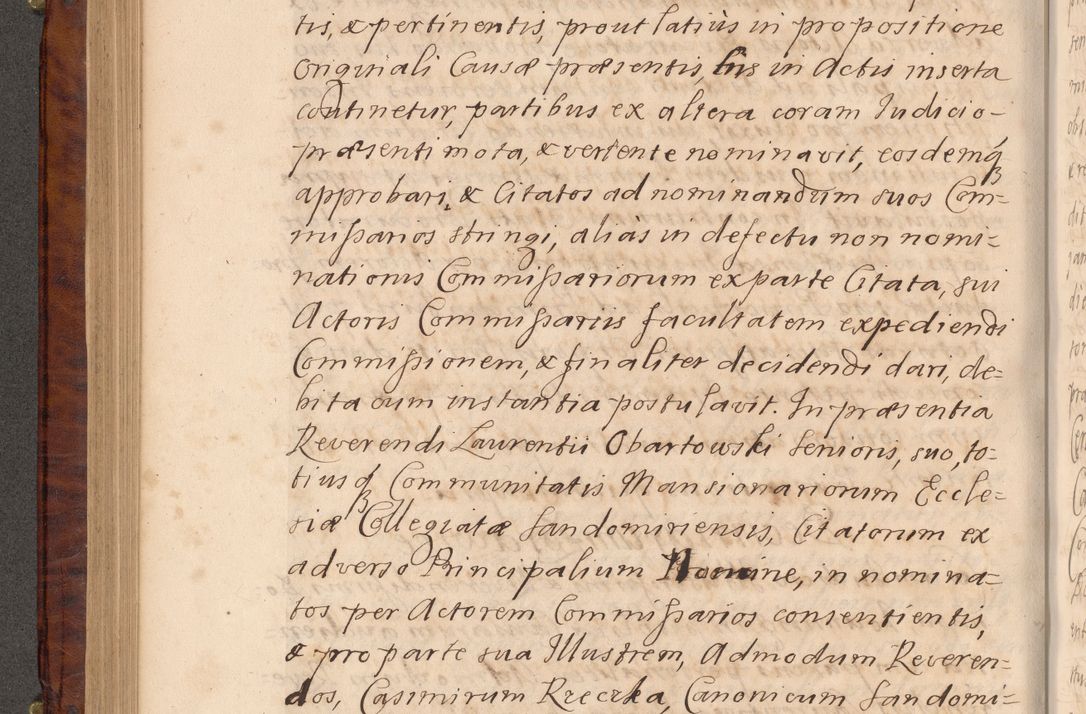 tis, & pertinentis, prout latiùs in propositione
Originali Causæ præsentis, his in Actis inserta
continetur, partibus ex altera coram Iudicio-
præsenti mota, & vertente nominavit, eosdemq̃
approbari, & Citatos ad nominandum suos Com=
mißarios stringi, aliàs in defectu non nomi=
nationis Commißariorum ex parte Citata, sui
Actoris Commißariis facultatem expediendi
Commißionem, & finaliter decidendi dari, de=
bita cum instantia postulavit. In præsentia
Reverendi Laurentii Obartowski Senioris, suo, to=
tiusq̃ Communitatis Mansionariorum Eccle=
siæ Collegiatæ Sandomiriensis, Citatorum ex
adverso Principalium Nomine, in nomina=
tos per Actorem Commißarios consentientis,
& pro parte sua Illustrem, Admodum Reveren=
dos, Casimirum Rzeczka, Canonicum Sandomi=